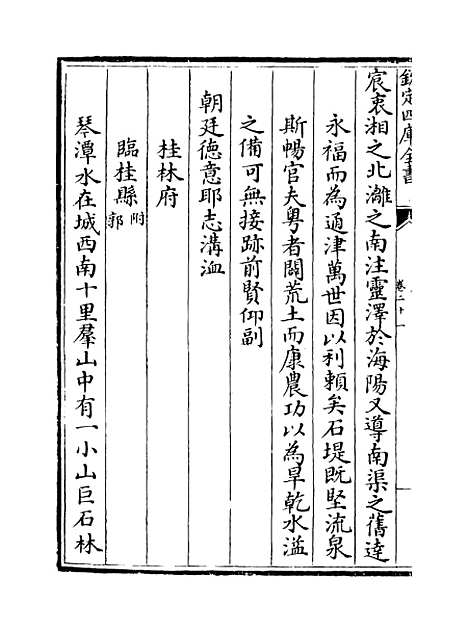 欽定四庫全書
卷二十一
宸衷湘之北灕之南注靈澤於海陽又導南渠之舊達
永福而為通津萬世因以利賴矣石堤既堅流泉
斯暢官夫粤者闢荒土而康農功以為旱乾水溢
之備可無接跡前賢仰副
朝廷德意耶志溝洫
桂林府
臨桂縣附郭
琴潭水在城西南十里羣山中有一小山巨石林